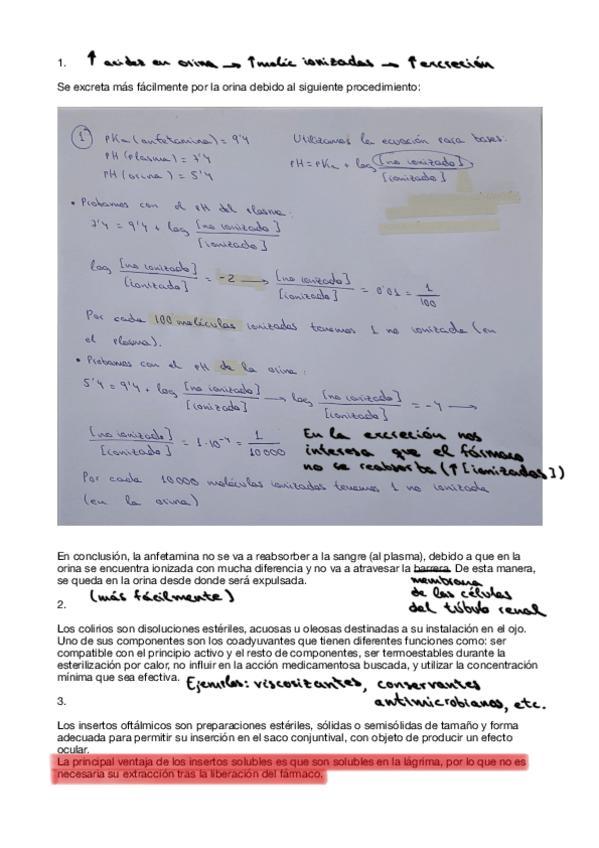 1. ↑ acidez en orina → ↑ molec ionizadas → ↑ excreción
Se excreta más fácilmente por la orina debido al siguiente procedimiento:
① pKa (anfetamina) = 9'4
PH (plasma) = 7'4
PH (orina) = 5'4
Utilizamos la ecuación para bases:
PH = PKa + log [no ionizado] / [ionizado]
• Probamos con el pH del plasma:
7'4 = 9'4 + log [no ionizado] / [ionizado]
log [no ionizado] / [ionizado] = -2 → [no ionizado] / [ionizado] = 0'01 = 1/100
Por cada 100 moléculas ionizadas tenemos 1 no ionizada (en
el plasma).
• Probamos con el pH de la orina:
5'4 = 9'4 + log [no ionizado] / [ionizado] → log [no ionizado] / [ionizado] = -4 →
[no ionizado] / [ionizado] = 1·10⁻⁴ = 1/10000
En la excreción nos
interesa que el fármaco
no se reabsorba (↑[ionizadas])
Por cada 10000 moléculas ionizadas tenemos 1 no ionizada
(en la orina)
En conclusión, la anfetamina no se va a reabsorber a la sangre (al plasma), debido a que en la
orina se encuentra ionizada con mucha diferencia y no va a atravesar la barrera. De esta manera,
se queda en la orina desde donde será expulsada.
(más fácilmente)
membrana
de las células
del túbulo renal
2.
Los colirios son disoluciones estériles, acuosas u oleosas destinadas a su instalación en el ojo.
Uno de sus componentes son los coadyuvantes que tienen diferentes funciones como: ser
compatible con el principio activo y el resto de componentes, ser termoestables durante la
esterilización por calor, no influir en la acción medicamentosa buscada, y utilizar la concentración
mínima que sea efectiva. Ejemplos: viscosizantes, conservantes
antimicrobianos, etc.
3.
Los insertos oftálmicos son preparaciones estériles, sólidas o semisólidas de tamaño y forma
adecuada para permitir su inserción en el saco conjuntival, con objeto de producir un efecto
ocular.
La principal ventaja de los insertos solubles es que son solubles en la lágrima, por lo que no es
necesaria su extracción tras la liberación del fármaco.